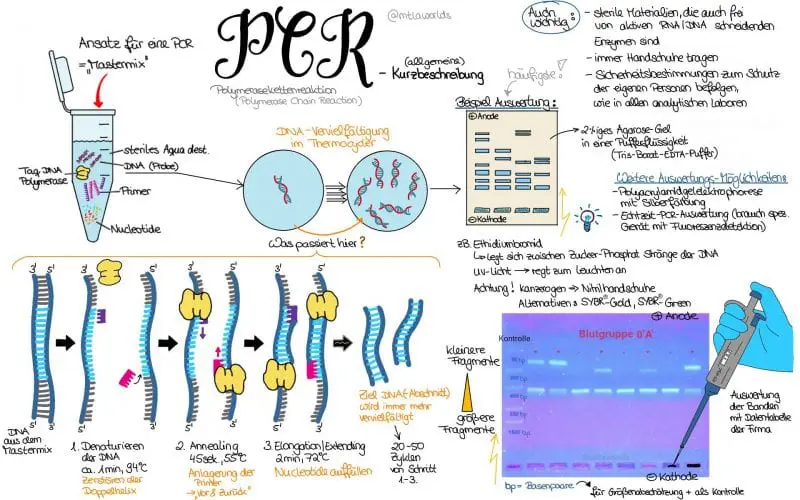 PCR
@mtlaworlds
- (allgemeine)
Kurzbeschreibung
Polymerasekettenreaktion
(Polymerase Chain Reaction)
Ansatz für eine PCR
= „Mastermix"
steriles Aqua dest.
DNA (Probe)
Taq DNA
Polymerase
Primer
Nucleotide
DNA-Vervielfältigung
im Thermocycler
Was passiert hier?
Auch
wichtig:
- sterile Materialien, die auch frei
von aktiven RNA/DNA schneidenden
Enzymen sind
- immer Handschuhe tragen
- Sicherheitsbestimmungen zum Schutz
der eigenen Personen befolgen,
wie in allen analytischen Laboren
häufigste!
Beispiel Auswertung:
⊕ Anode
⊖ Kathode
2%iges Agarose-Gel
in einer Pufferflüssigkeit
(Tris-Borat-EDTA-Puffer)
Weitere Auswertungs-Möglichkeiten:
- Polyacrylamidgelelektrophorese
mit Silberfärbung
- Echtzeit-PCR-Auswertung (brauch spez.
Gerät mit Fluoreszenzdetektion)
zB. Ethidiumbromid
↳ legt sich zwischen Zucker-Phosphat Stränge der DNA
UV-Licht → regt zum Leuchten an
Achtung! kanzerogen → Nitrilhandschuhe
Alternativen: SYBR®-Gold, SYBR®-Green
3' 5' 3' 5' 3' 5' 3' 5'
DNA
aus dem
Mastermix
1. Denaturieren
der DNA
ca. 1min, 94°C
Zerstören der
Doppelhelix
2. Annealing
45sek, 55°C
Anlagerung der
Primer
→ „Vor & Zurück"
3. Elongation/Extending
2min, 72°C
Nucleotide auffüllen
Ziel DNA(-Abschnitt)
wird immer mehr
vervielfältigt
20-50
Zyklen
von Schritt
1-3.
⊕ Anode
Kontrolle
Blutgruppe 0'A'
kleinere
Fragmente
größere
Fragmente
⊖ Kathode
Auswertung
der Banden
mit Datentabelle
der Firma
bp = Basenpaare
für Größenabschätzung + als Kontrolle